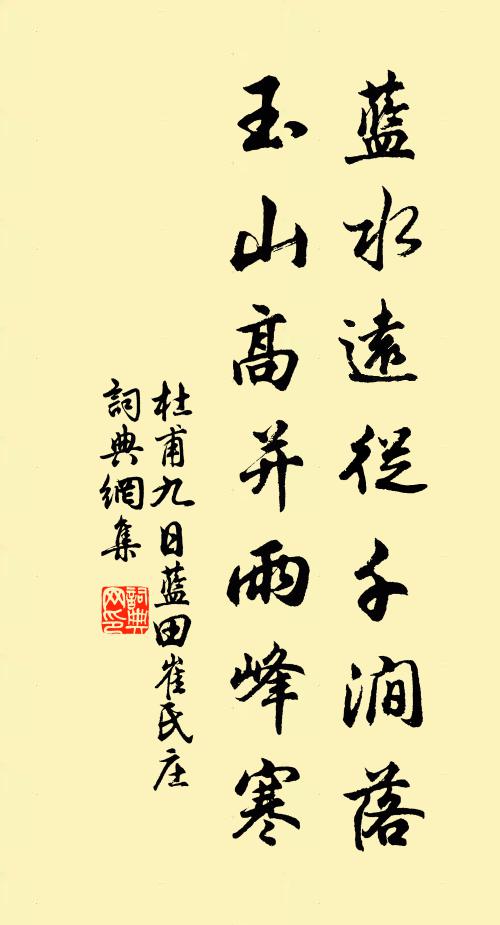 藍水遠從千澗落
玉山高并兩峰寒
杜甫九日藍田崔氏庄
詞典網集
詞典
网印